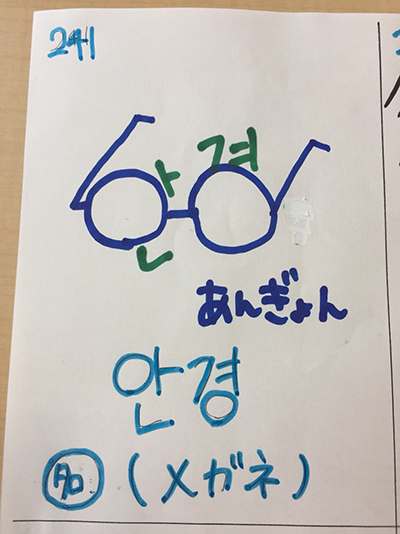 241
안경
あんぎょん
안경
名 (メガネ)